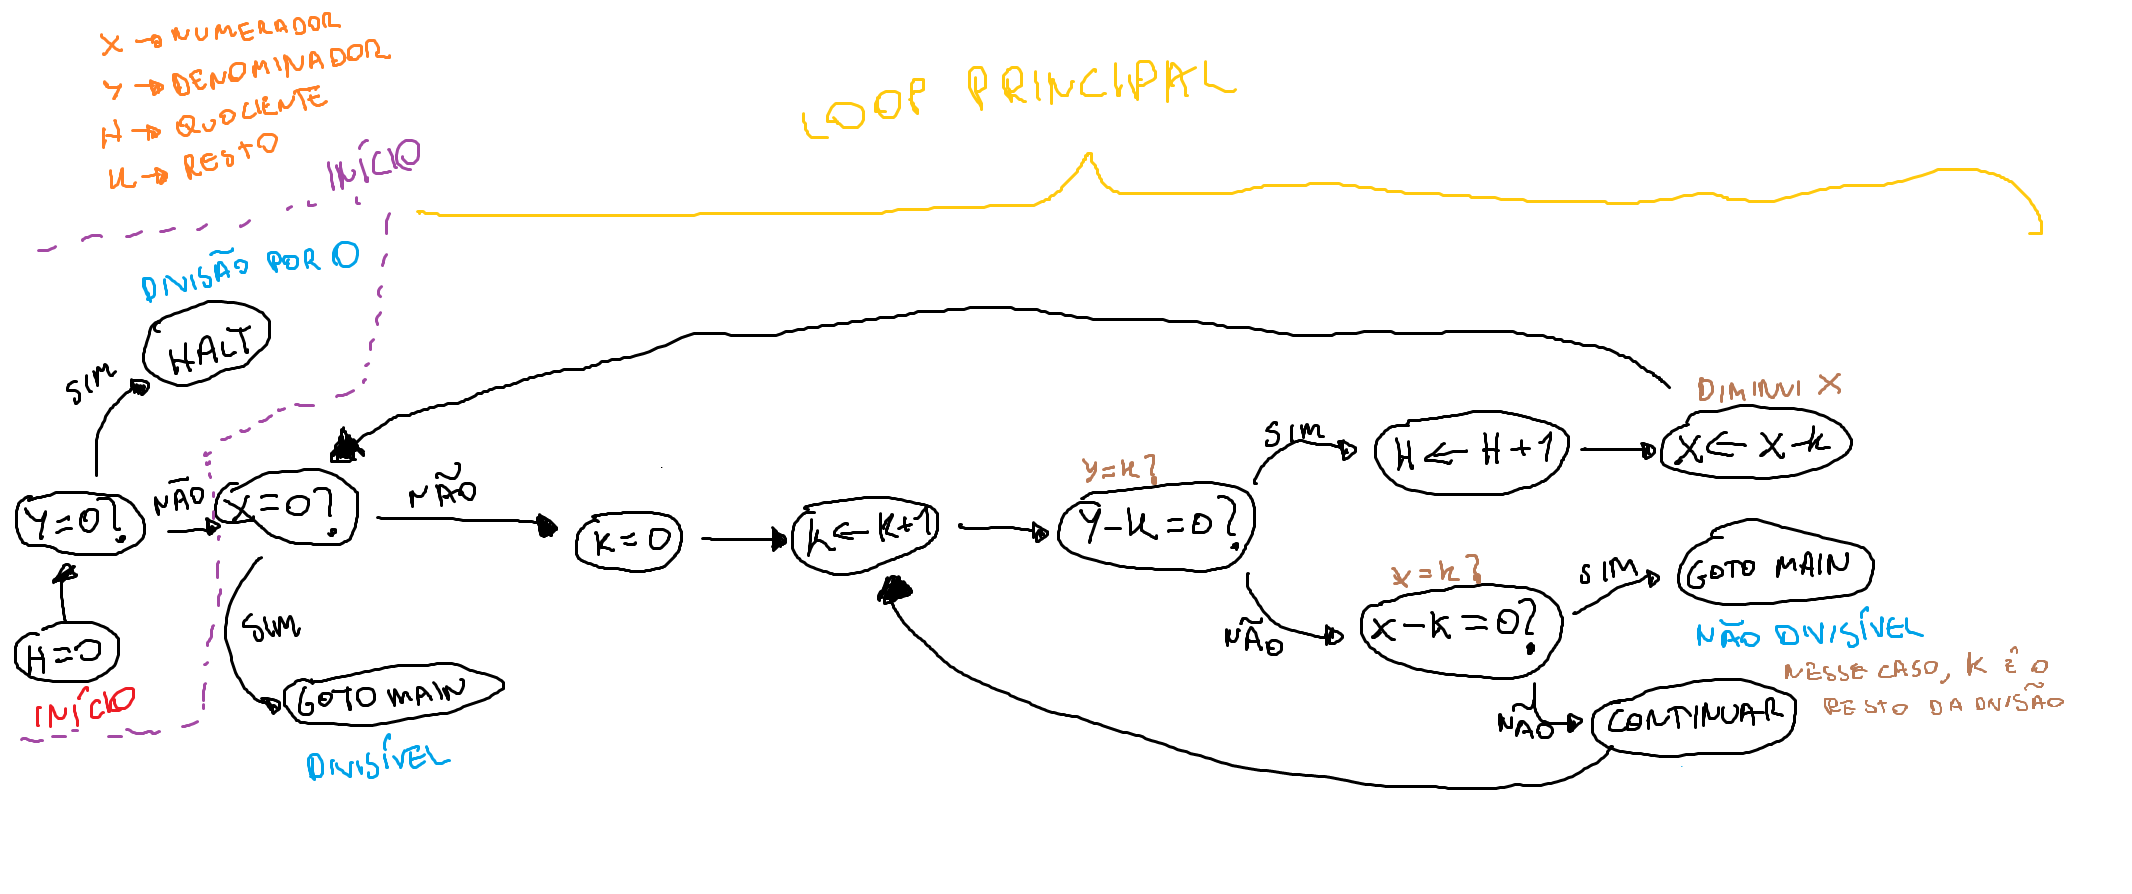 X → NUMERADOR
Y → DENOMINADOR
H → QUOCIENTE
K → RESTO
INÍCIO
LOOP PRINCIPAL
DIVISÃO POR 0
HALT
SIM
Y=0?
NÃO
H=0
INÍCIO
X=0?
NÃO
SIM
GOTO MAIN
DIVISÍVEL
K=0
K←K+1
Y=K?
Y-K=0?
SIM
H←H+1
DIMINUI X
X←X-K
NÃO
X=K?
X-K=0?
SIM
GOTO MAIN
NÃO DIVISÍVEL
NESSE CASO, K É O
RESTO DA DIVISÃO
NÃO
CONTINUAR